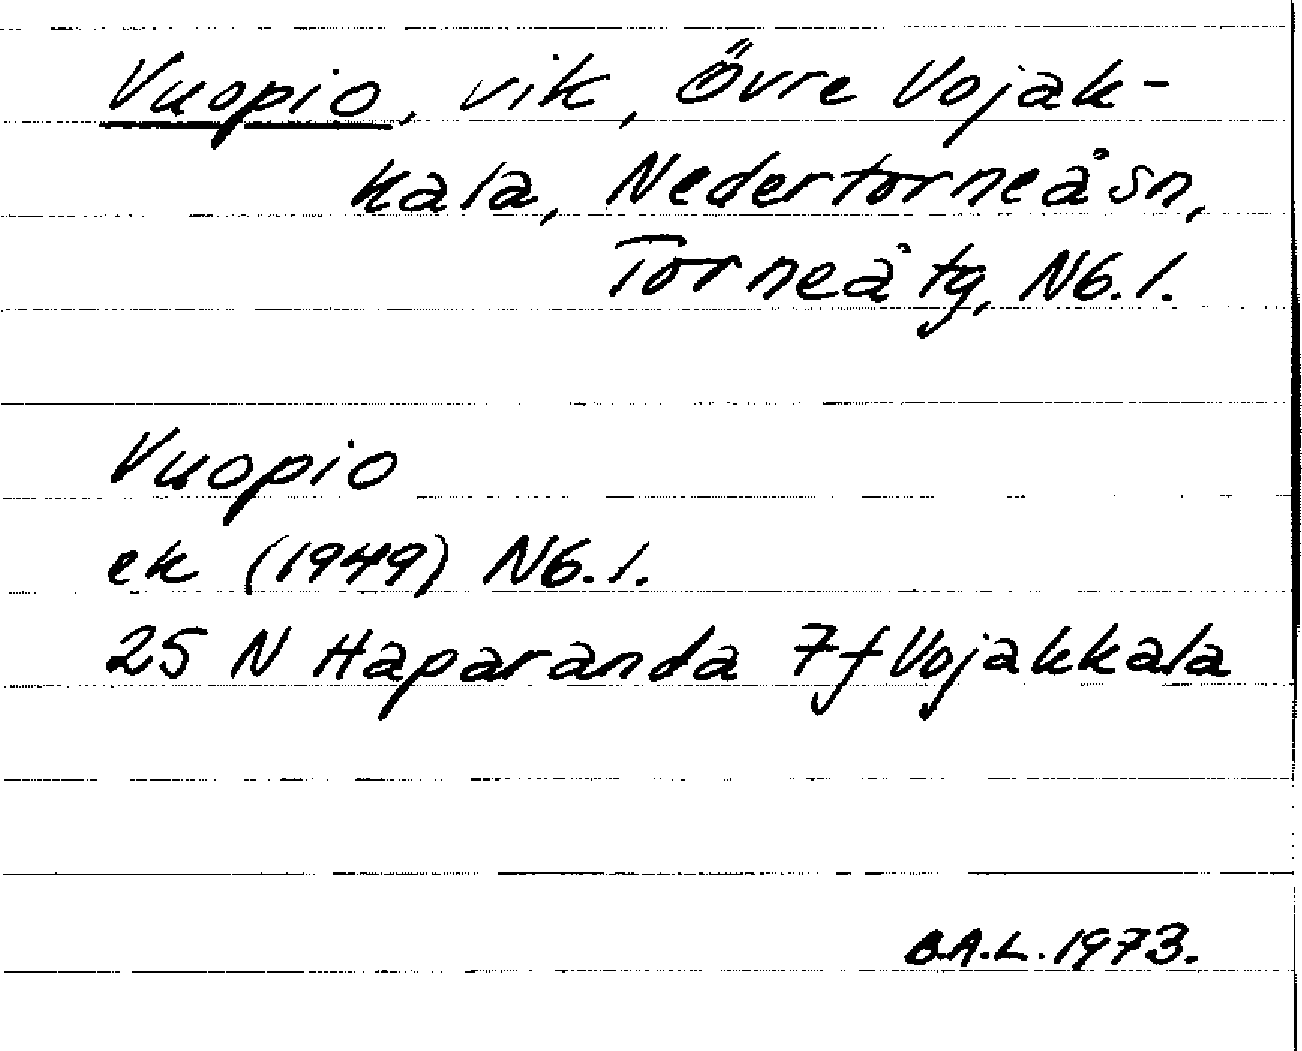 Vuopio, vik, Övre Vojak-
kala, Nedertorneå sn,
Torneå tg, Nb.l.
Vuopio
ek (1949) Nb.l.
25 N Haparanda 7f Vojakkala
B.A.L. 1973.